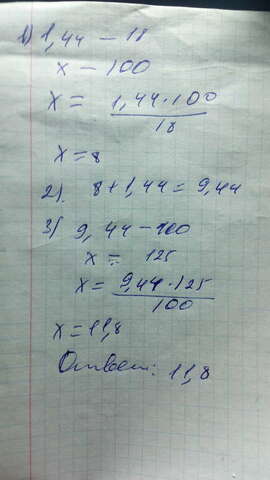 1) 1,44 - 18
x - 100
x = 1,44·100
18
x = 8
2). 8 + 1,44 = 9,44
3) 9,44 - 100
x = 125
x = 9,44·125
100
x = 11,8
Ответ: 11,8